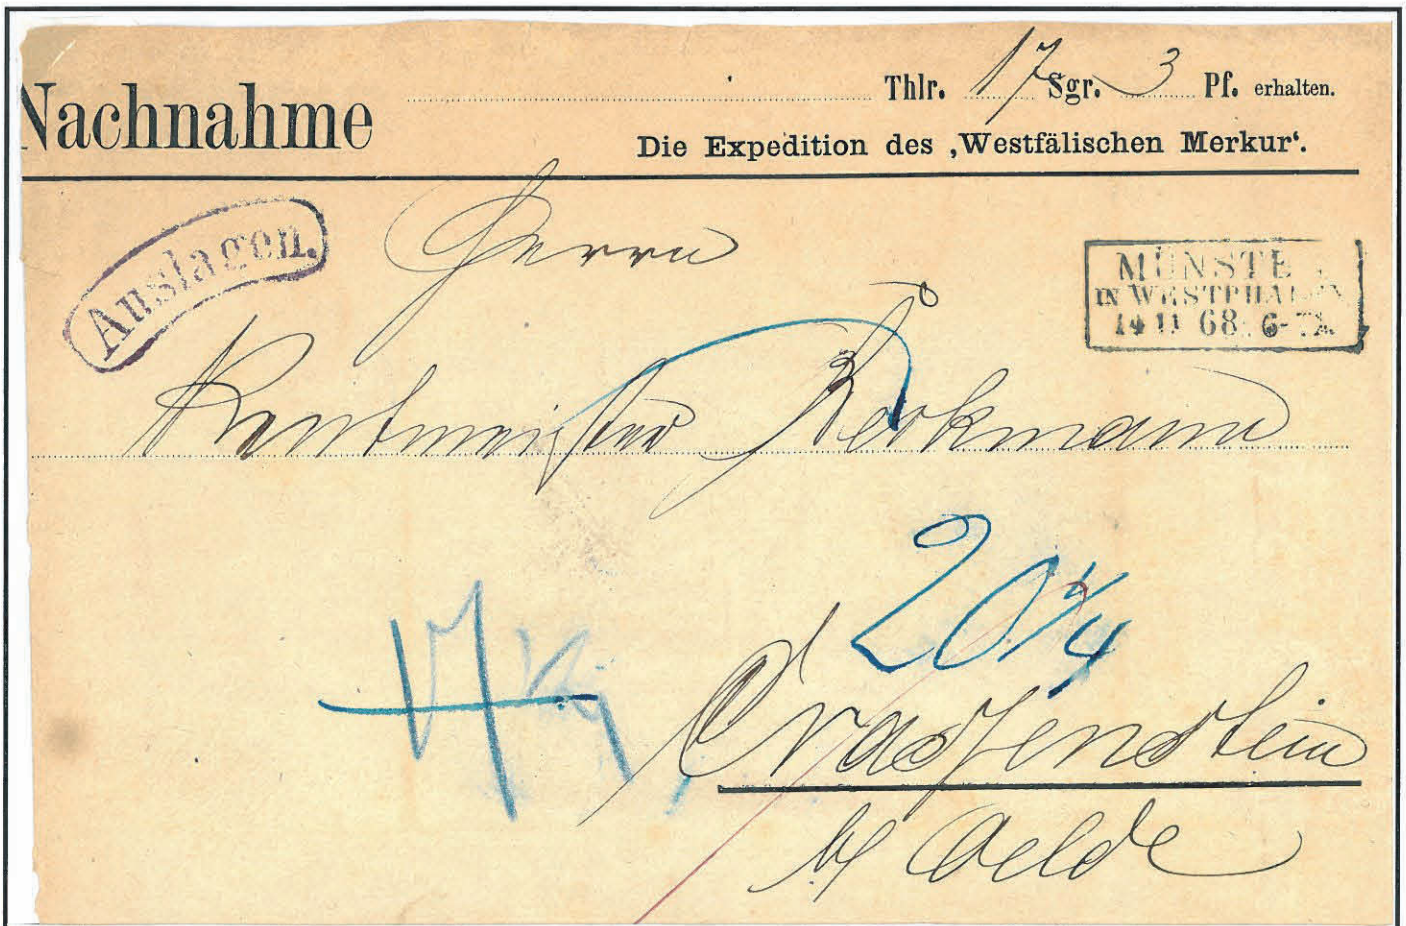 Nachnahme Thlr. 17 Sgr. 3 Pf. erhalten.
Die Expedition des ‚Westfälischen Merkur‘.
Auslagen.
Herrn
MÜNSTE
IN WESTPHALEN
14 11 68 6-7A.
Rentmeister
20 1/4
Crassenstein
b/ Oelde